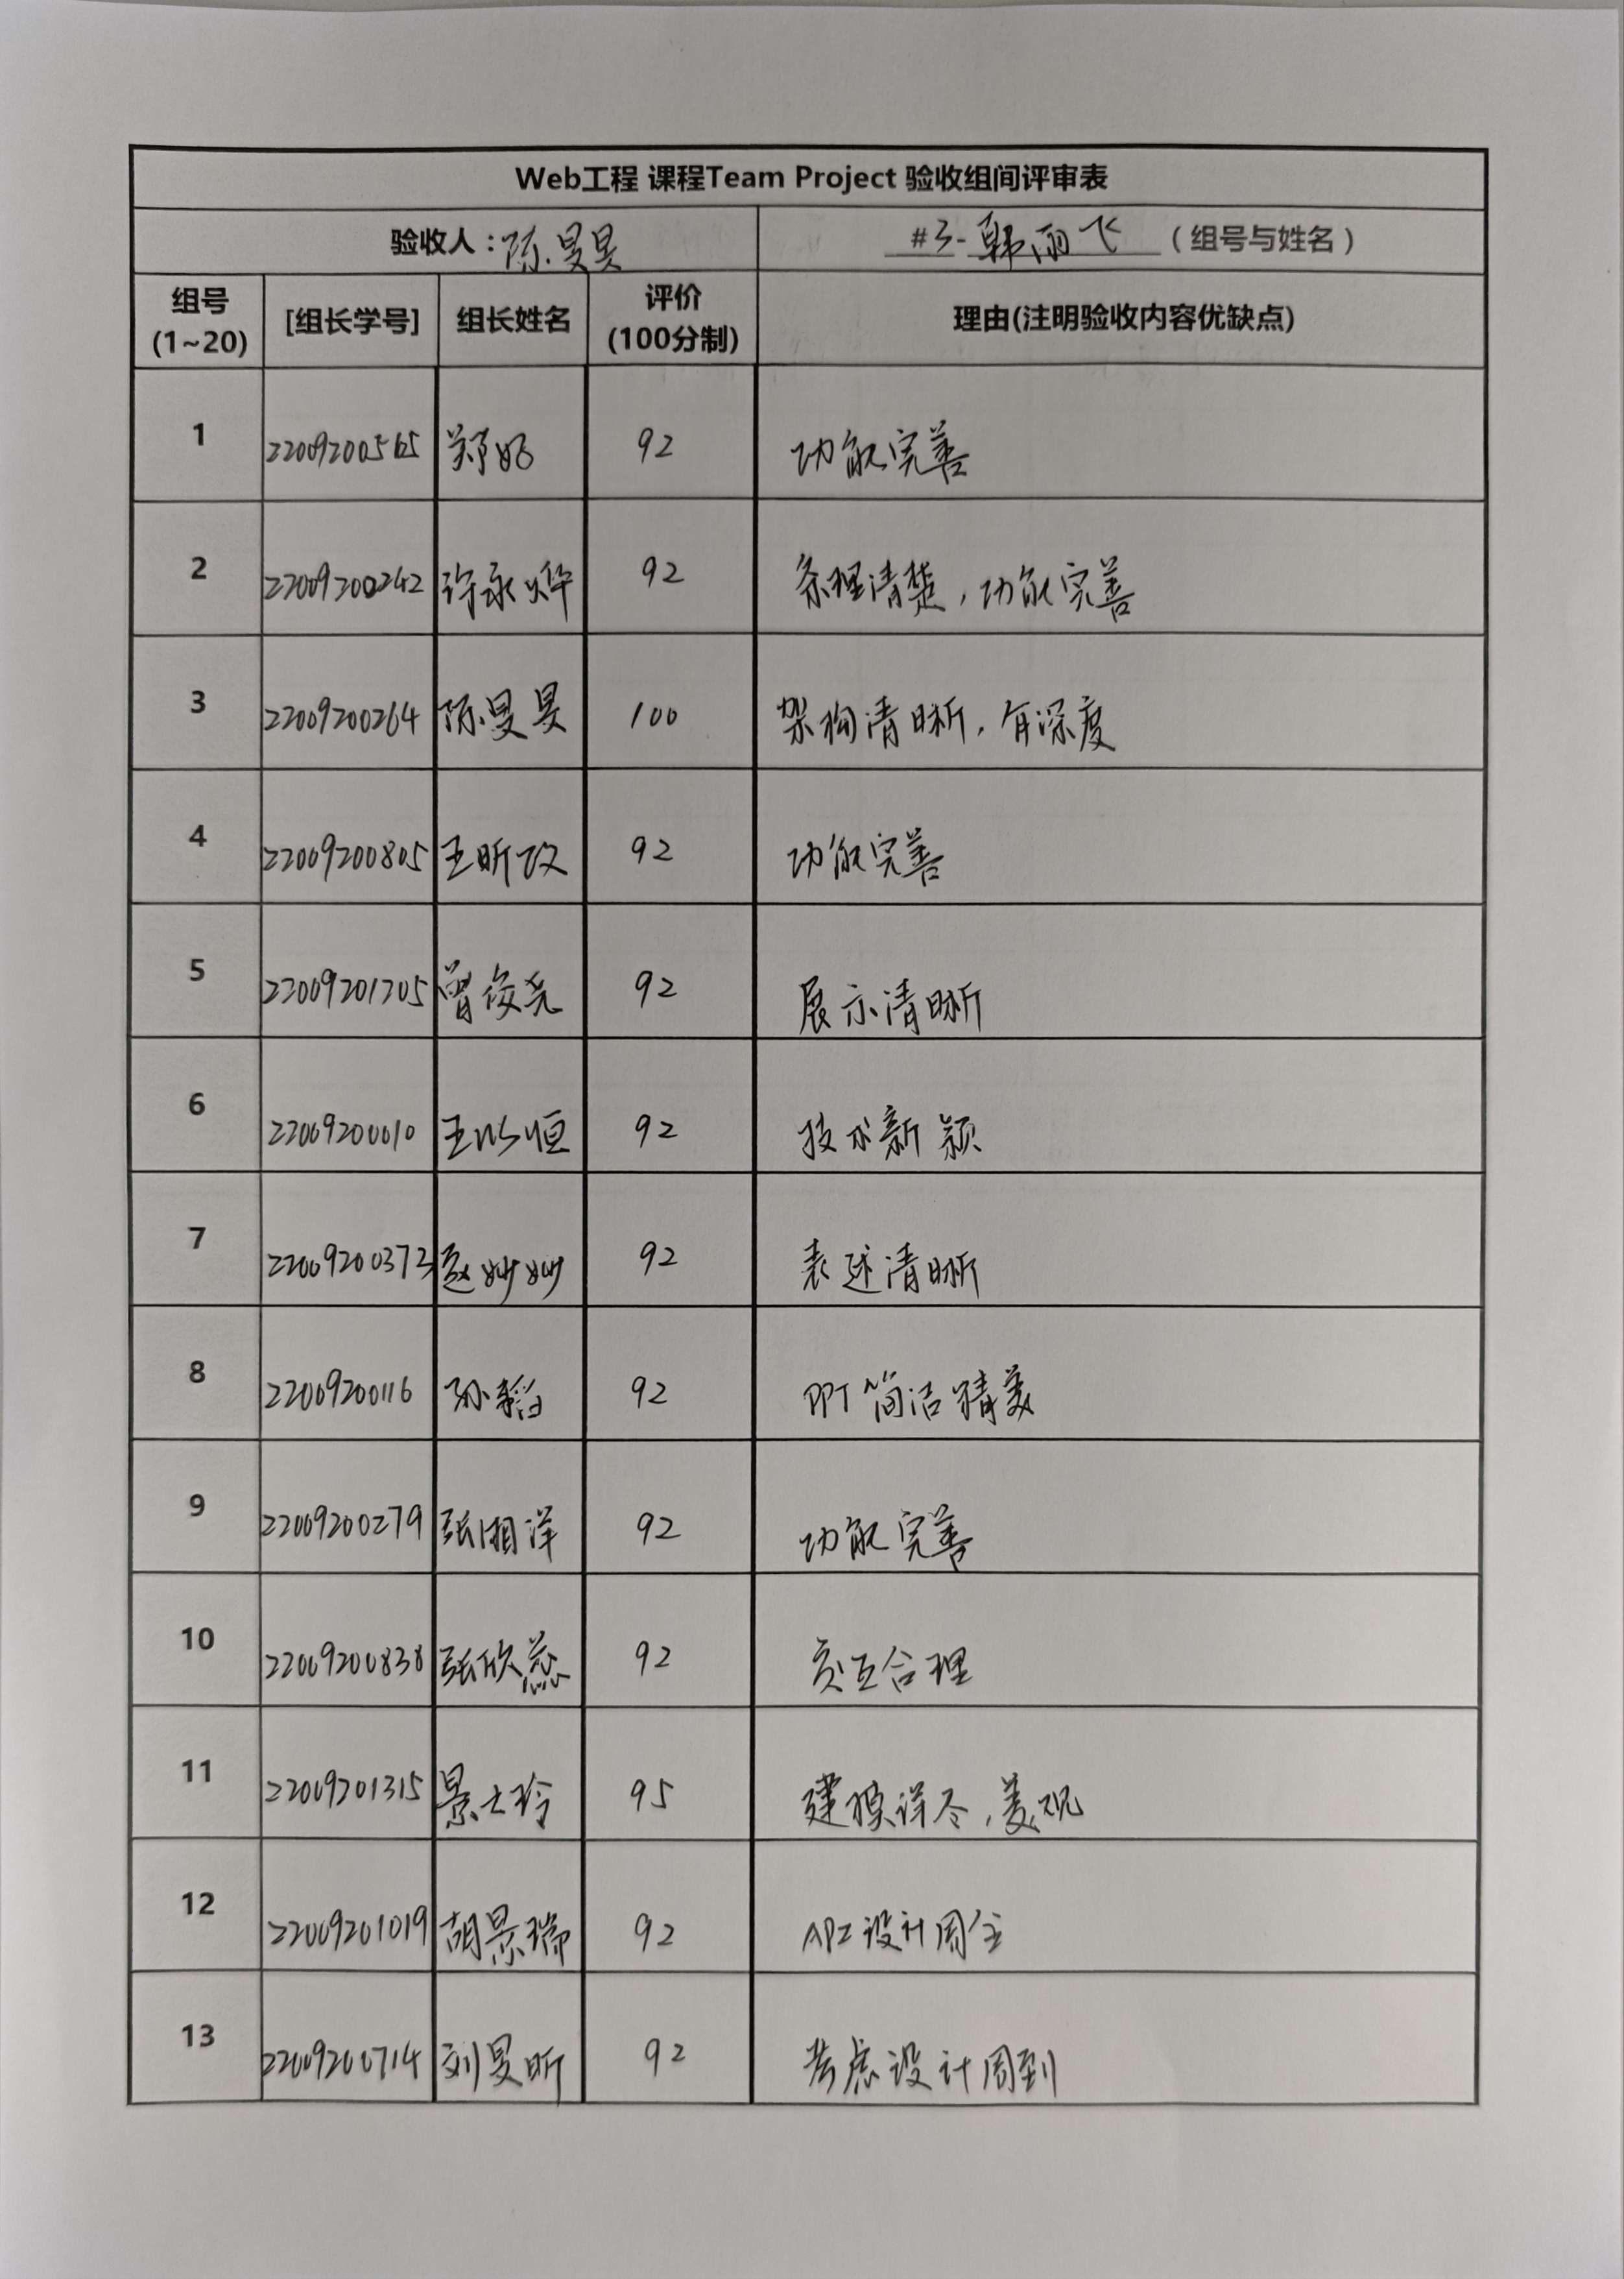 Web工程 课程Team Project 验收组间评审表
验收人：陈旻昊 #3-韩雨飞（组号与姓名）
组号(1~20) [组长学号] 组长姓名 评价(100分制) 理由(注明验收内容优缺点)
1 22009200565 郑好 92 功能完善
2 22009200242 许永烨 92 条理清楚，功能完善
3 22009200264 陈旻昊 100 架构清晰，有深度
4 22009200805 王昕玟 92 功能完善
5 22009201205 曾俊尧 92 展示清晰
6 22009200010 王 恒 92 技术新颖
7 22009200373 赵妙妙 92 表述清晰
8 22009200116 孙韬 92 PPT简洁精美
9 22009200279 张湘洋 92 功能完善
10 22009200838 张欣慈 92 交互合理
11 22009201315 景士玲 95 建模详尽，美观
12 22009201019 胡景瑞 92 API设计周全
13 22009200714 刘旻昕 92 考虑设计周到